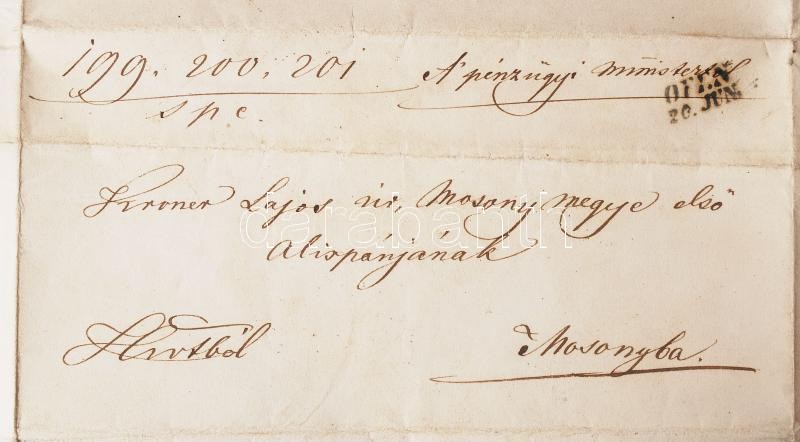 199. 200. 201 A' pénzügyi ministertől
OFEN
s p c.
20. JUN.
Kroner Lajos úr, Mosony megye első
Alispánjának
darabanth
Hivtból Mosonyba.